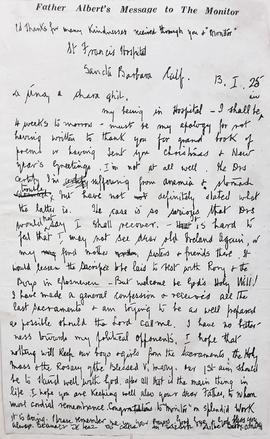 Father Albert's Message to The Monitor
"d thanks for many kindnesses received through you & "Monitor"
St Francis Hospital
Sancta Barbara Calf.
13. I. 25
a Úna, a chara dhil,
my being in Hospital - I shall be in
4 weeks to morrow - must be my apology for not
having written to thank you for grand book of
poems & having sent you Christmas & New
Year's Greetings. I'm not at all well. The Drs
certify I'm suffering from anaemia & stomach
trouble but have not definitely stated what
the latter is. The case is so serious that Drs
would say I shall recover. It is hard to
feel that I may not see dear old Ireland again, or
my fond mother, sisters & friends there. It
would lessen the sacrifice were I laid to rest with Rory & the
Boys in Glasnevin - But welcome be God's Holy Will!
I have made a general confession & received all the
last sacraments & am trying to be as well prepared
as possible should the Lord call me. I have no bitter-
ness towards my political opponents, I hope that
nothing will keep our boys & girls from the Sacraments, the Holy
Mass & the Rosary of the Blessed V. Mary. Our 1st aim should
be to stand well with God. after all that is the main thing in
life. I hope you are keeping well also your dear Father, to whom
most cordial remembrance. Congratulations to "Monitor" on splendid work
it is doing. Please remember me